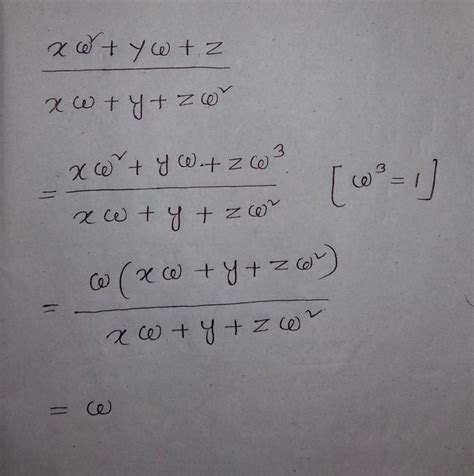 xω²+yω+z
xω+y+zω²
= xω²+yω+zω³ [ω³=1]
xω+y+zω²
= ω(xω+y+zω²)
xω+y+zω²
= ω